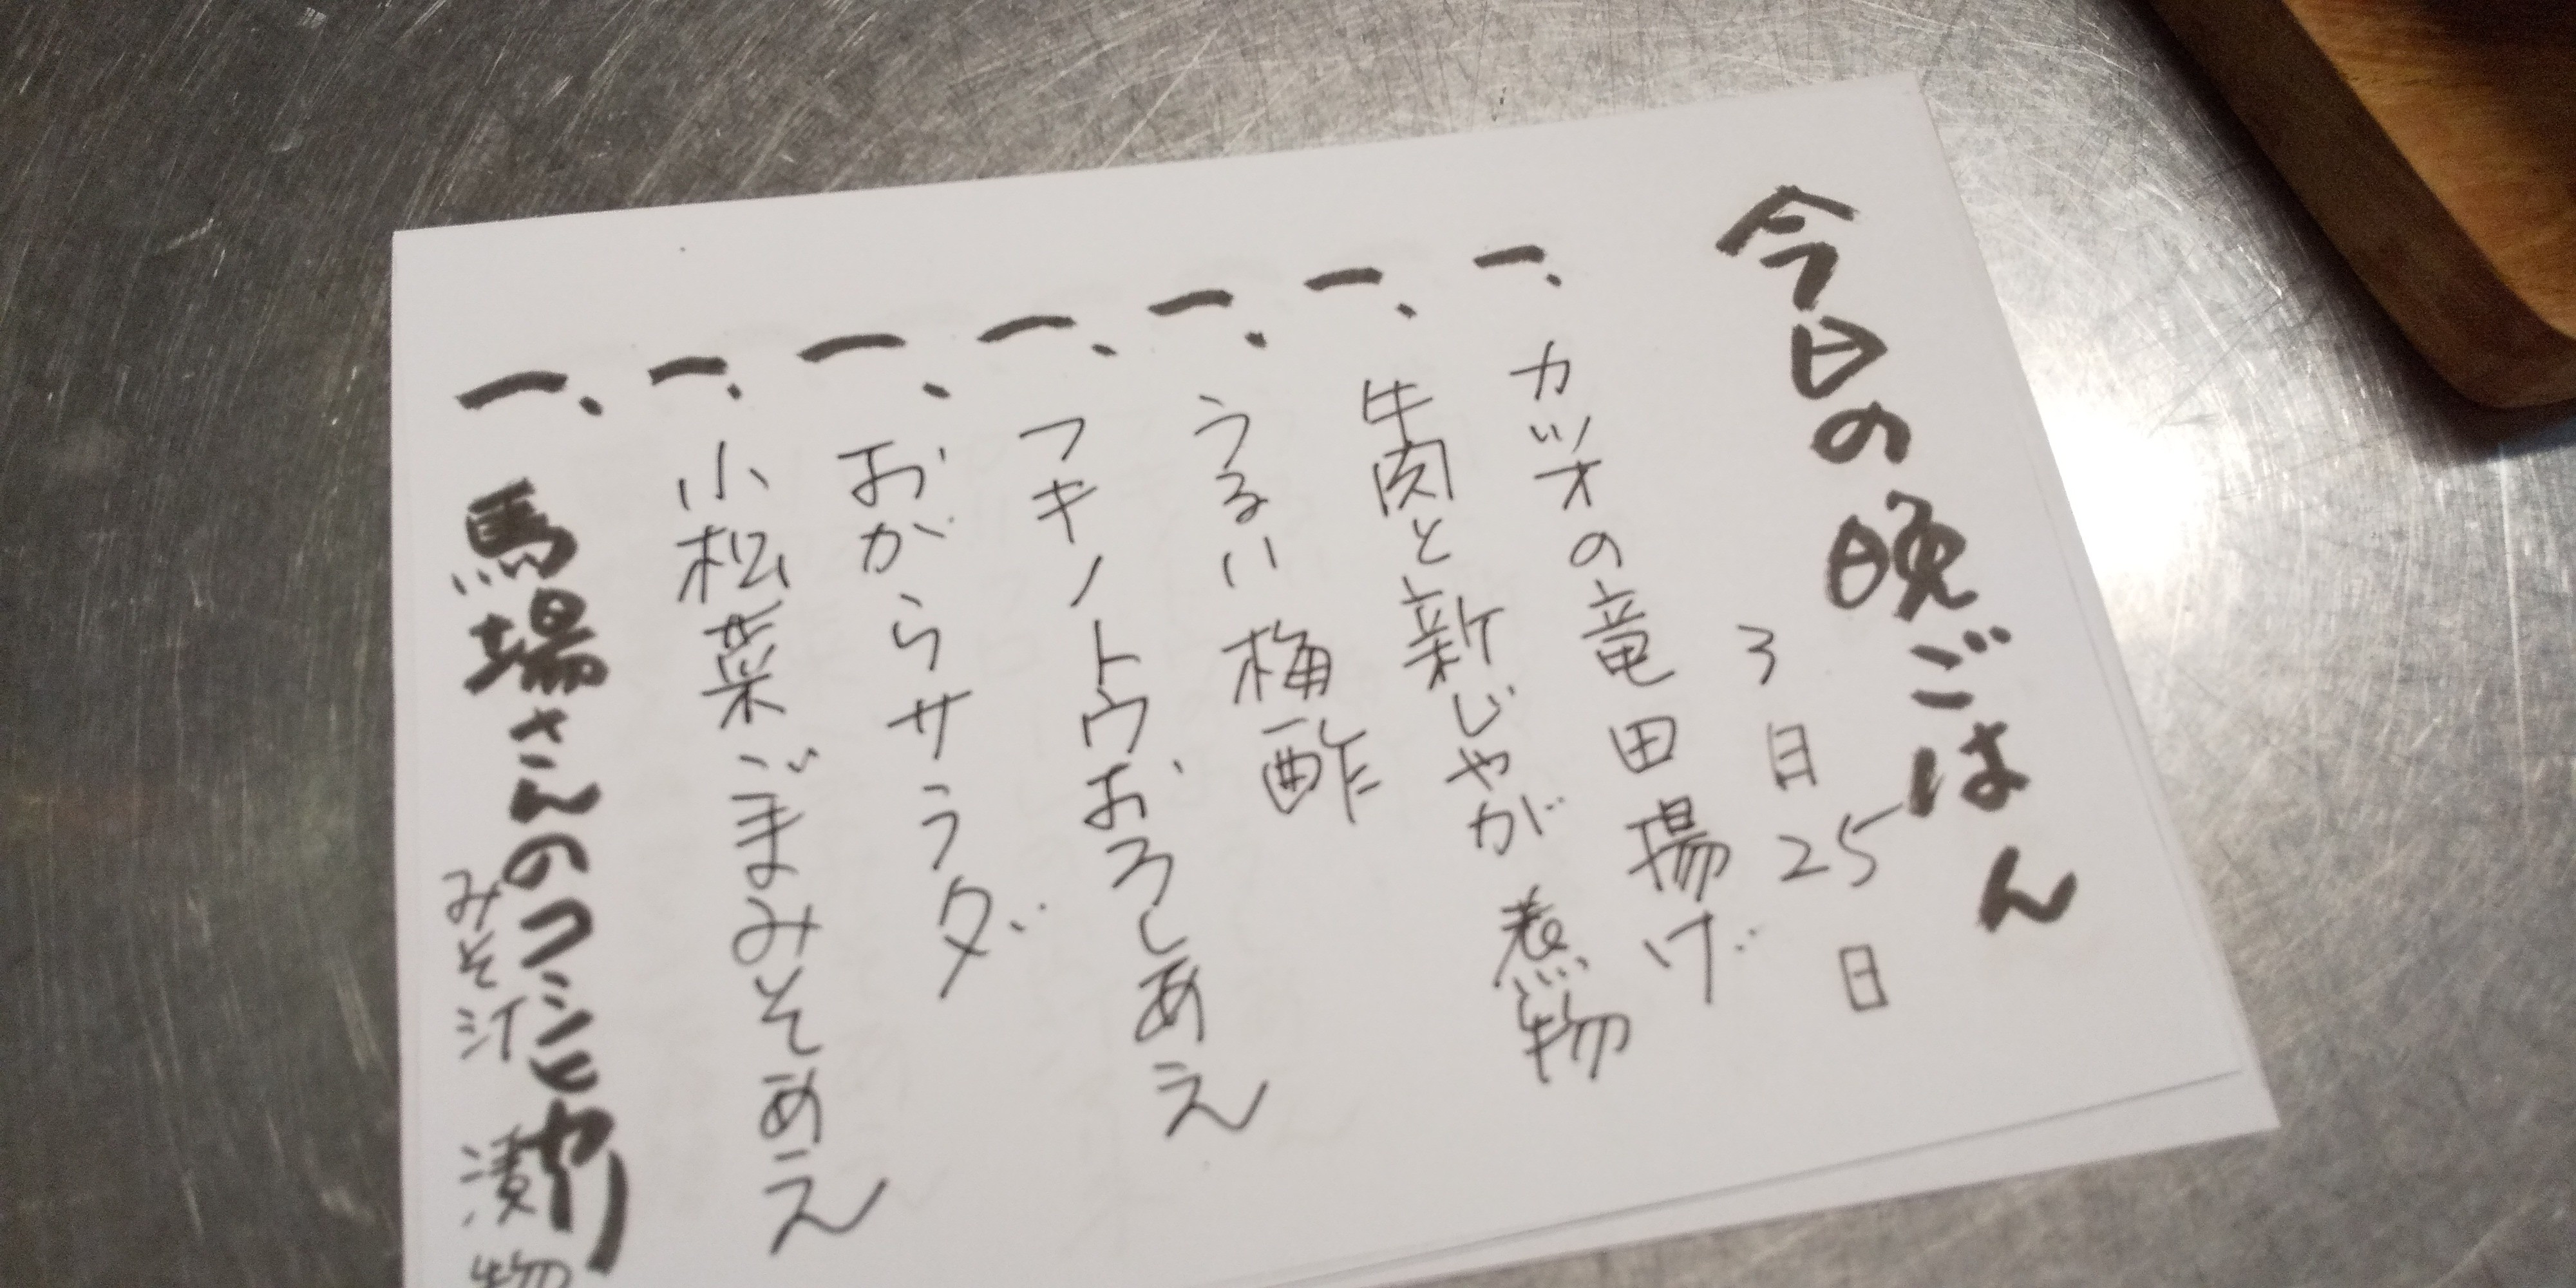 今日の晩ごはん
3日25日
一、カツオの竜田揚げ
一、牛肉と新じゃが煮物
一、うるい梅酢
一、フキノトウおろしあえ
一、おからサラダ
一、小松菜ごまみそあえ
一、馬場さんのコシヒカリ
みそ汁 漬物